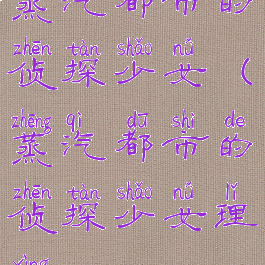 蒸汽都市的
zhēn tàn shǎo nǚ
侦探少女（
zhēng qì dū shì de
蒸汽都市的
zhēn tàn shǎo nǚ lǐ
侦探少女理